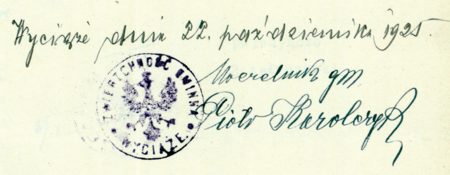 Wyciąże dnia 22. października 1925
Naczelnik gm.
ZWIERZCHNOŚĆ GMINNA
WYCIĄŻE.
Piotr Karolczyk